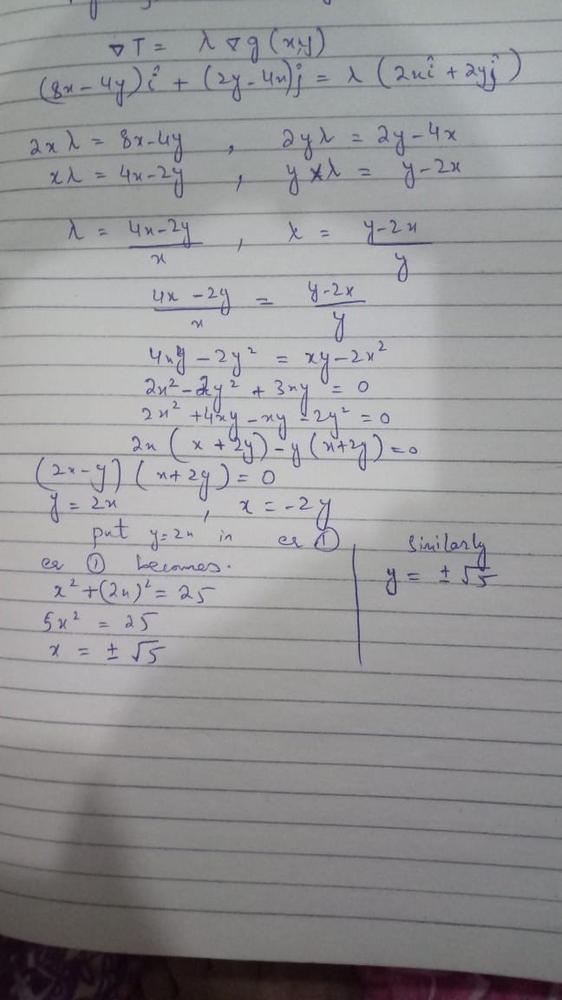 ▽T = λ ▽g(x,y)
(8x-4y)î + (2y-4x)ĵ = λ (2xî + 2yĵ)
2xλ = 8x-4y , 2yλ = 2y-4x
xλ = 4x-2y , yλ = y-2x
λ = (4x-2y)/x , λ = (y-2x)/y
(4x-2y)/x = (y-2x)/y
4xy - 2y² = xy-2x²
2x²-2y² + 3xy = 0
2x² +4xy -xy -2y² = 0
2x (x + 2y) - y (x+2y) = 0
(2x-y) (x+2y) = 0
y = 2x , x = -2y
put y=2x in eq ①
eq ① becomes.
x²+(2x)² = 25
5x² = 25
x = ± √5
Similarly
y = ± √5